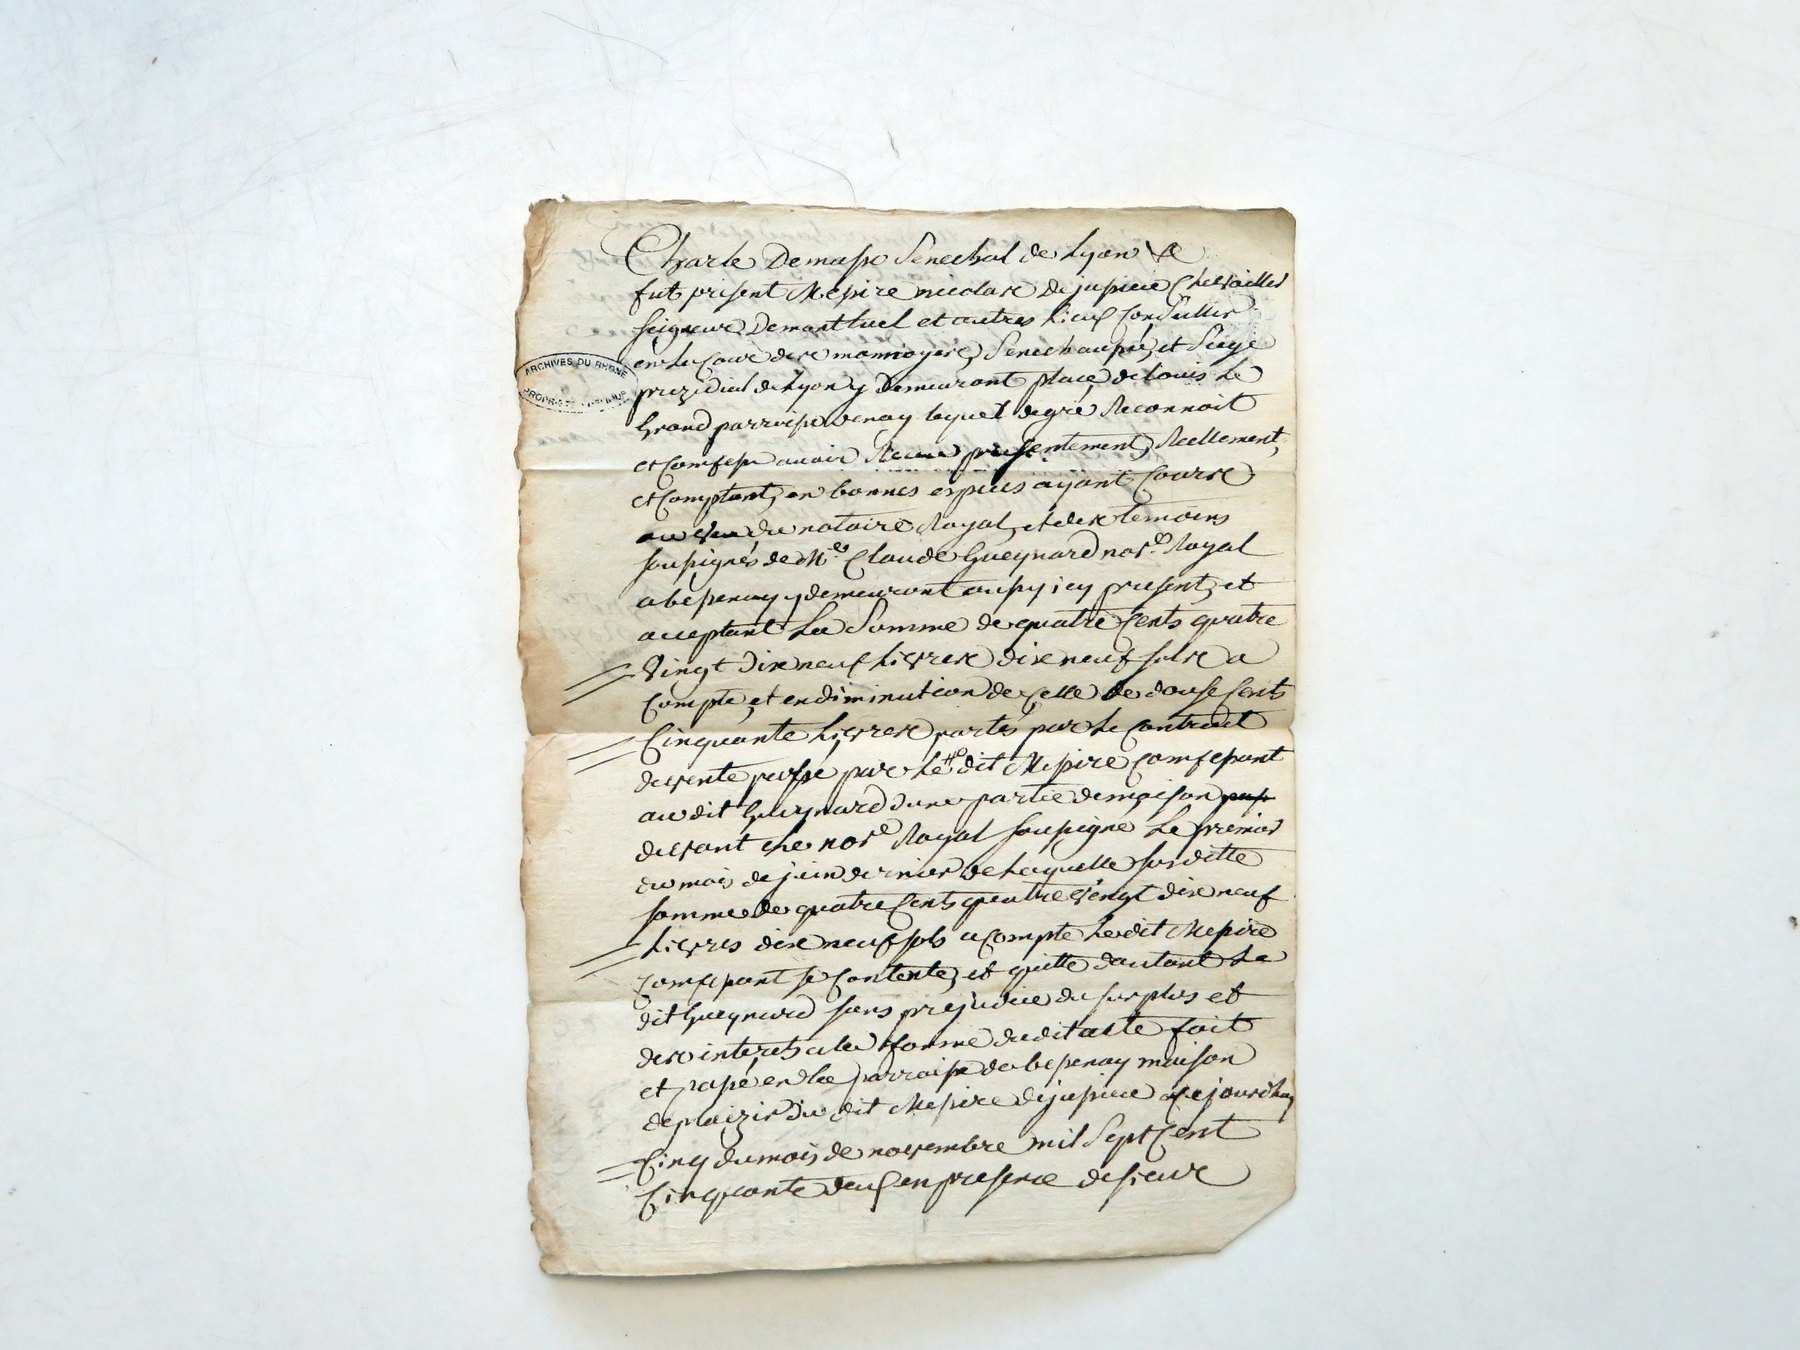 Charle Demasse Senechal de Lyon &c
fut present Messire nicolas Dejussieu Chevallier
seigneur Demontluel et autres Lieux Conseiller
en la Cour des monnoyes, Senechaussée, et Siege
prezidial de Lyon y Demeurant place de Louis Le
Grand parroisse venay lequel de gré Reconnoit
et Confesse avoir Receu presentement, Reellement,
et Comptant, en bonnes especes ayant Cours
au veu du notaire Royal, et des temoins
soussignés de Me Claude Gueynard nore Royal
a bessenay y demeurant aussy icy present, et
acceptant La Somme de quatre Cents quatre
Vingt Dix neuf Livres dix neuf sols a
Compte, et en diminution de Celle de douse Cents
Cinquante Livres portés par Le Contract
de vente passé par Le dit Messire Confessant
au dit Gueynard d'une partie de maison
devant Le nore Royal soussigné Le premier
du mois de juin dernier de Laquelle susditte
somme de quatre Cents quatre vingt dix neuf
Livres dix neuf sols a Compte Le dit Messire
Confessant se Contente, et quitte d'autant Le
dit Gueynard sans prejudice du surplus et
des interets a la forme du dit acte fait
et passé en la parroisse de bessenay maison
de plaizir du dit Messire dejussieu Ce jourdhuy
Cinq du mois de novembre mil Sept Cent
Cinquante deux en presence de sieur
ARCHIVES DU RHONE